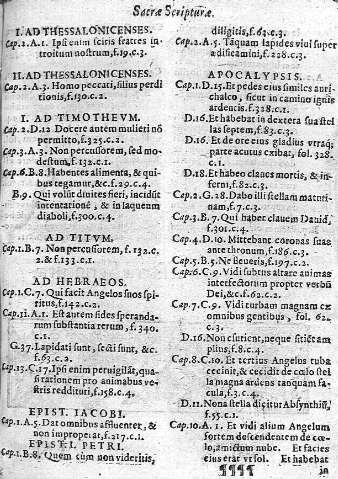 Sacræ Scripturæ.
I. AD THESSALONICENSES.
Cap.2.A.1. Ipsi enim scitis fratres in
troitum nostrum, f.19.c.3.
II. AD THESSALONICENSES.
Cap.2.A.3. Homo peccati, filius perdi
tionis, f.130.c.2.
I. AD TIMOTHEVM.
Cap.2.D.12. Docere autem mulieri nõ
permitto, f.325.c.2.
Cap.3.A.3. Non percussorem, sed mo
destum, f.132.c.1.
Cap.6.B.8. Habentes alimenta, & quibus
tegamur, &c. f.29.c.4.
B.9. Qui volũt divites fieri, incidũt
in tentationẽ, & in laqueum
diaboli, f.300.c.4.
AD TITVM.
Cap.1.B.7. Non percussorem, f.132.c.
2.& f.133.c.1.
AD HEBRAEOS.
Cap.1.C.7. Qui facit Angelos suos spi
ritus, f.142.c.2.
Cap.11.A.1. Est autem fides speranda-
rum substantia rerum, f.340.
c.1.
G.37. Lapidati sunt, secti sunt, &c.
f.63.c.2.
Cap.13.C.17. Ipsi enim pervigilãt, qua
si rationem pro animabus ve-
stris reddituri, f.158.c.4.
EPIST. IACOBI.
Cap.1.A.5. Dat omnibus affluenter, &
non improperat, f.217.c.1.
EPIST. I. PETRI.
Cap.1.B.8. Quem cùm non videritis,
diligitis, f.62.c.3.
Cap.2.A.5. Tãquam lapides vivi super
ædificamini, f.228.c.3.
APOCALYPSIS.
Cap.1.D.15. Et pedes eius similes auri-
chalco, sicut in camino ignis
ardentis, f.328.c.1.
D.16. Et habebat in dextera sua stel
las septem, f.83.c.3.
D.16. Et de ore eius gladius utraq;
parte acutus exibat, fol. 328.
c.1.
D.18. Et habeo claues mortis, & in-
ferni, f.82.c.3.
Cap.2.G.28. Dabo illi stellam matuti-
nam, f.7.c.3.
Cap.3.B.7. Qui habet clauem Dauid,
f.301.c.4.
Cap.4.D.10. Mittebant coronas suas
ante thronum, f.186.c.3.
Cap.5.B.5. Ne fleueris, f.197.c.2.
Cap.6.C.9. Vidi subtus altare animas
interfectorum propter verbũ
Dei, &c. f.62.c.2.
Cap.7.C.9. Vidi turbam magnam ex
omnibus gentibus, fol. 62.
c.3.
D.16. Non esurient, neque sitiẽt am
plius, f.8.c.4.
Cap.8.C.10. Et tertius Angelus tuba
cecinit, & cecidit de cœlo stel
la magna ardens tanquam fa-
cula, f.3.c.4.
D.11. Nona stella dicitur Absynthiũ,
f.55.c.1.
Cap.10.A.1. Et vidi alium Angelum
fortem descendentem de cœ-
lo, amictum nube. Et facies
eius erat vt sol. Et habebat
¶¶¶¶
in